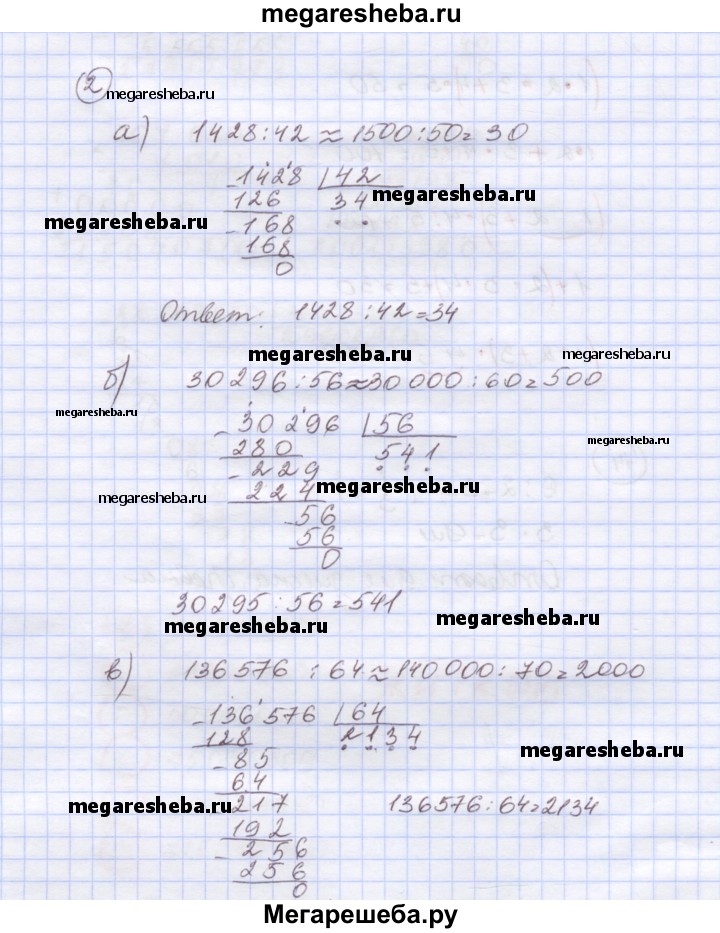 megaresheba.ru
2
megaresheba.ru
а) 1428:42 ≈ 1500:50 = 30
1428 42
126 34 megaresheba.ru
megaresheba.ru 168
168
0
Ответ: 1428:42=34
megaresheba.ru megaresheba.ru
б) 30296:56≈30000:60=500
megaresheba.ru
30296 56
280 541
229 megaresheba.ru
megaresheba.ru 224 megaresheba.ru
56
56
0
30295:56=541
megaresheba.ru megaresheba.ru
в) 136576 : 64 ≈ 140000:70=2000
136576 64
128 2134
85 megaresheba.ru
64
megaresheba.ru 217 136576:64=2134
192
256
256
0
Мегарешеба.ру